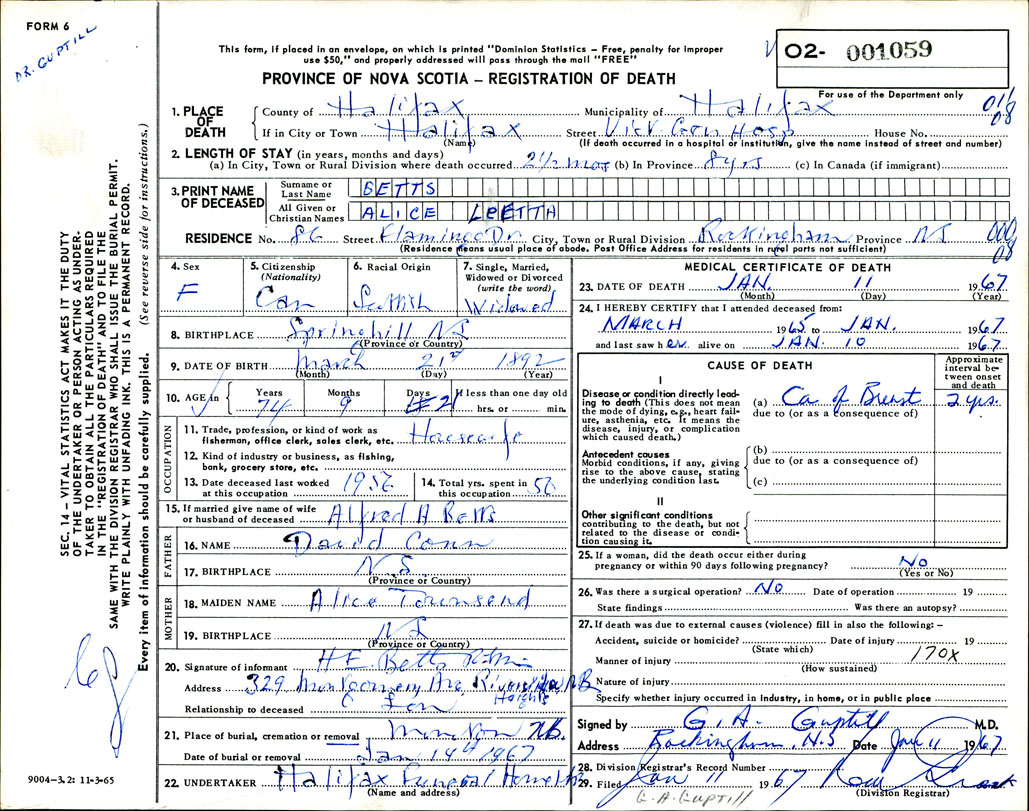 FORM 6
DR. GUPTILL
This form, if placed in an envelope, on which is printed "Dominion Statistics – Free, penalty for improper
use $50," and properly addressed will pass through the mail "FREE"
PROVINCE OF NOVA SCOTIA – REGISTRATION OF DEATH
O2- 001059
For use of the Department only
1. PLACE OF DEATH
County of Halifax Municipality of Halifax
If in City or Town Halifax Street Vict Gen Hosp House No.
(Name) (If death occurred in a hospital or institution, give the name instead of street and number)
2. LENGTH OF STAY (in years, months and days)
(a) In City, Town or Rural Division where death occurred 2 1/2 mos (b) In Province 8 yrs (c) In Canada (if immigrant)
3. PRINT NAME OF DECEASED
Surname or Last Name BETTS
All Given or Christian Names ALICE LEETTA
RESIDENCE No. 86 Street Flamingo Dr. City, Town or Rural Division Rockingham Province NS
(Residence means usual place of abode. Post Office Address for residents in rural parts not sufficient)
4. Sex F
5. Citizenship (Nationality) Can
6. Racial Origin Scottish
7. Single, Married, Widowed or Divorced (write the word) Widowed
8. BIRTHPLACE Springhill NS
(Province or Country)
9. DATE OF BIRTH March 21st 1892
(Month) (Day) (Year)
10. AGE in Years 74 Months 9 Days 21 If less than one day old hrs. or min.
OCCUPATION
11. Trade, profession, or kind of work as fisherman, office clerk, sales clerk, etc. Housewife
12. Kind of industry or business, as fishing, bank, grocery store, etc.
13. Date deceased last worked at this occupation 1956
14. Total yrs. spent in this occupation 50
15. If married give name of wife or husband of deceased Alfred H Betts
FATHER
16. NAME David Conn
17. BIRTHPLACE N.S.
(Province or Country)
MOTHER
18. MAIDEN NAME Alice Townsend
19. BIRTHPLACE NS
(Province or Country)
20. Signature of informant H E. Betts
Address 329 Montgomery Ave Riverview Heights NB
Relationship to deceased Son
21. Place of burial, cremation or removal Moncton NB.
Date of burial or removal Jan 14th 1967
22. UNDERTAKER Halifax Funeral Home
(Name and address)
MEDICAL CERTIFICATE OF DEATH
23. DATE OF DEATH JAN. 11 1967
(Month) (Day) (Year)
24. I HEREBY CERTIFY that I attended deceased from:
MARCH 1965 to JAN. 1967
and last saw her alive on JAN 10 1967
CAUSE OF DEATH
Approximate interval between onset and death
I
Disease or condition directly leading to death (This does not mean the mode of dying, e.g., heart failure, asthenia, etc. It means the disease, injury, or complication which caused death.)
(a) Ca of Breast 2 yrs.
due to (or as a consequence of)
Antecedent causes
Morbid conditions, if any, giving rise to the above cause, stating the underlying condition last.
(b)
due to (or as a consequence of)
(c)
II
Other significant conditions
contributing to the death, but not related to the disease or condition causing it.
25. If a woman, did the death occur either during pregnancy or within 90 days following pregnancy? No
(Yes or No)
26. Was there a surgical operation? No Date of operation 19
State findings Was there an autopsy?
27. If death was due to external causes (violence) fill in also the following: –
Accident, suicide or homicide? Date of injury 19
(State which)
Manner of injury 170X
(How sustained)
Nature of injury
Specify whether injury occurred in industry, in home, or in public place
Signed by G. A. Guptill M.D.
Address Rockingham, N.S Date Jan 11 1967
28. Division Registrar's Record Number
29. Filed Jan 11 1967
(Division Registrar)
G.A. GUPTILL
SEC. 14 – VITAL STATISTICS ACT MAKES IT THE DUTY
OF THE UNDERTAKER OR PERSON ACTING AS UNDER-
TAKER TO OBTAIN ALL THE PARTICULARS REQUIRED
IN THE "REGISTRATION OF DEATH" AND TO FILE THE
SAME WITH THE DIVISION REGISTRAR WHO SHALL ISSUE THE BURIAL PERMIT.
WRITE PLAINLY WITH UNFADING INK. THIS IS A PERMANENT RECORD.
Every item of information should be carefully supplied. (See reverse side for instructions.)
9004-3.2: 11-3-65